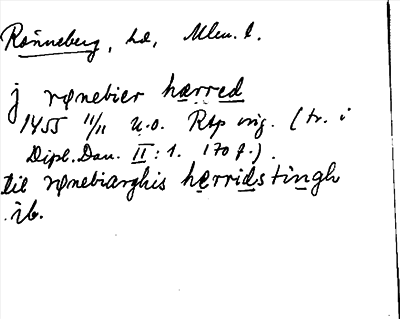 Rønneberg, hd, Mlm. l.
j rønebier hærred
1455 11/11 u.o. Rtp orig. (tr. i
Dipl. Dan. II: 1. 170 f.).
til rønebiarghis hærridstingh
ib.